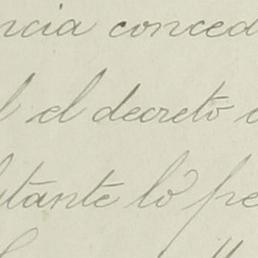 ncia conced
l el decreto
tante lo pe